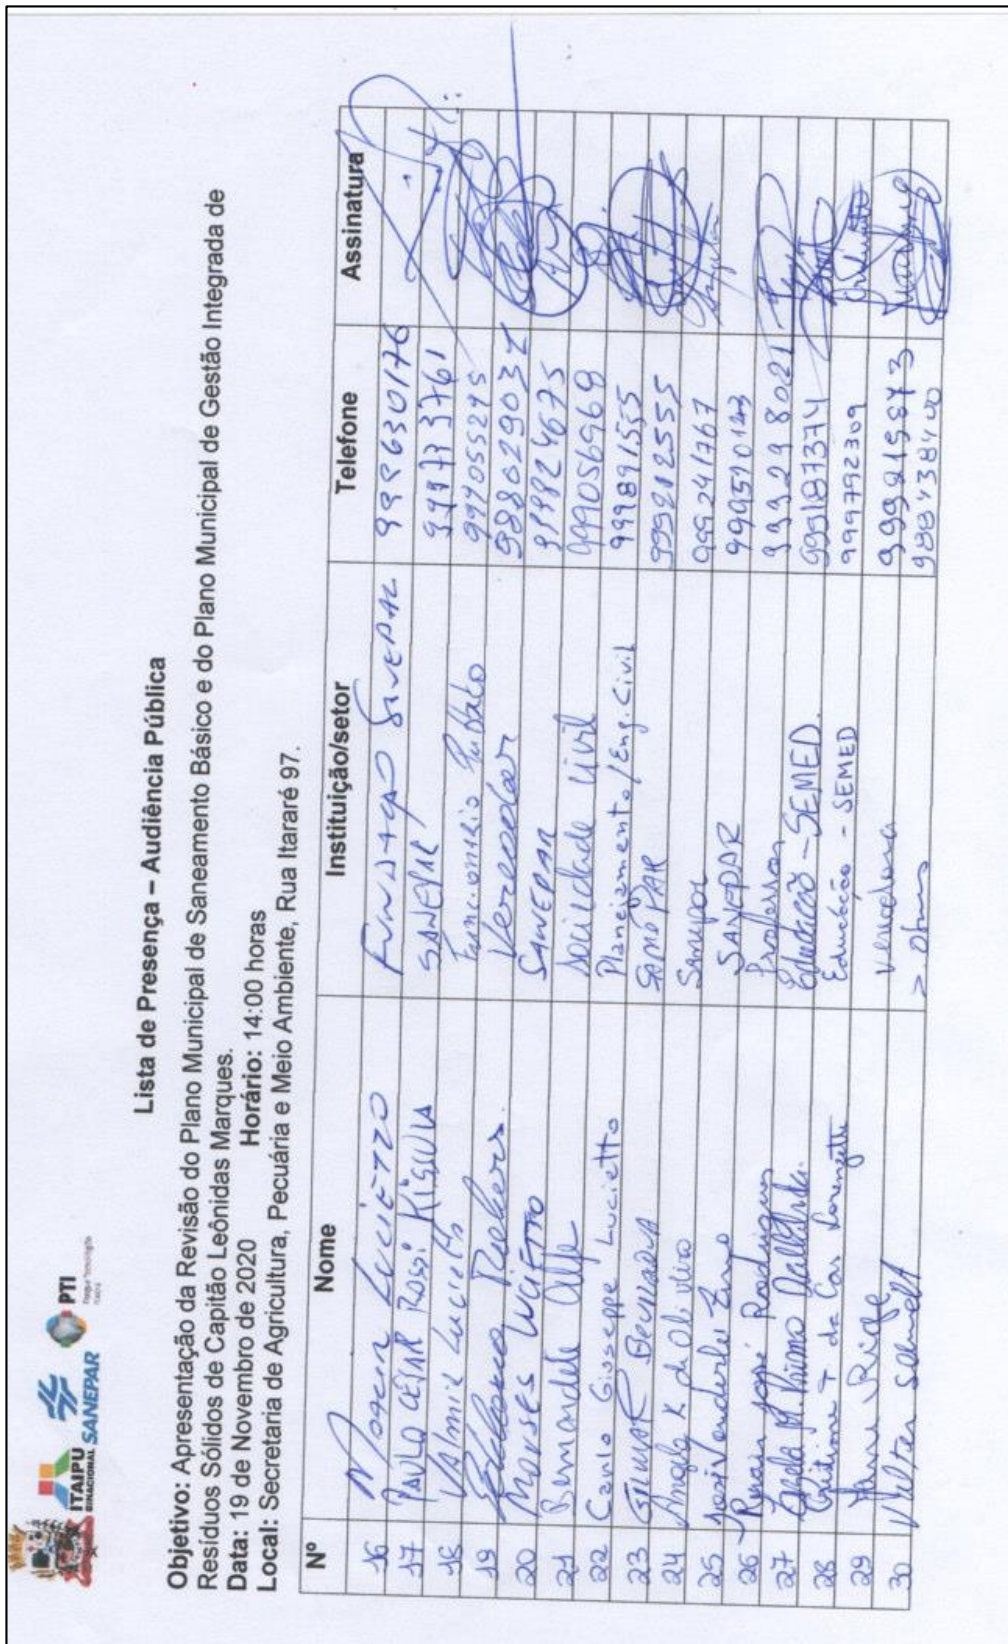 ITAIPU
BINACIONAL
SANEPAR
PTI
Lista de Presença – Audiência Pública
Objetivo: Apresentação da Revisão do Plano Municipal de Saneamento Básico e do Plano Municipal de Gestão Integrada de
Resíduos Sólidos de Capitão Leônidas Marques.
Data: 19 de Novembro de 2020 Horário: 14:00 horas
Local: Secretaria de Agricultura, Pecuária e Meio Ambiente, Rua Itararé 97.
Nº Nome Instituição/setor Telefone Assinatura
16 Moacir Lucietto Fundação Sanepar 999630176
17 Paulo César Rossi Kigula SANEPAR 999733761
18 Valmir Lucietto Funcionario Publico 999055295
19 Vereador 988029037
20 Moyses Lucietto Sanepar 999824675
21 sociedade civil 999056968
22 Carlo Giuseppe Lucietto Planejamento/Eng. Civil 999891555
23 Gilmar 999212555
24 Angela K de Oliveira Sanepar 999241767 Angela
25 SANEPAR 999590143
26 José Rodrigues Professor 999298021
27 Educação - SEMED. 999187374
28 Educação - SEMED 999792309
29 Vereadora 999915873
30 988438400